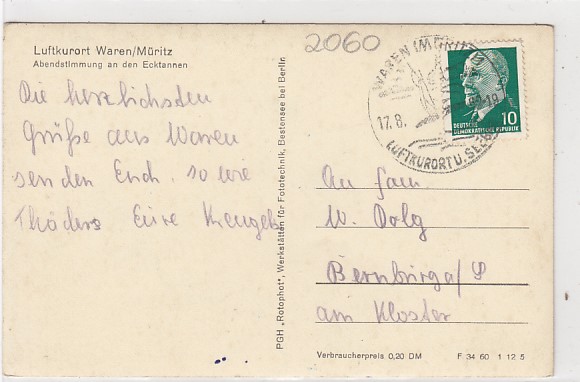 Luftkurort Waren/Müritz
Abendstimmung an den Ecktannen
2060
Die herzlichsten
Grüße aus Waren
senden Euch, so wie
Thöders Eure Krengels
PGH „Rotophot“, Werkstätten für Fototechnik, Bestensee bei Berlin
WAREN (MÜRITZ)
17.8.
-18
LUFTKURORT U. SEEB
10
DEUTSCHE
DEMOKRATISCHE REPUBLIK
An Fam
W. Dolg
Bernburg a/S
am Kloster
Verbraucherpreis 0,20 DM
F 34 60 1 12 5